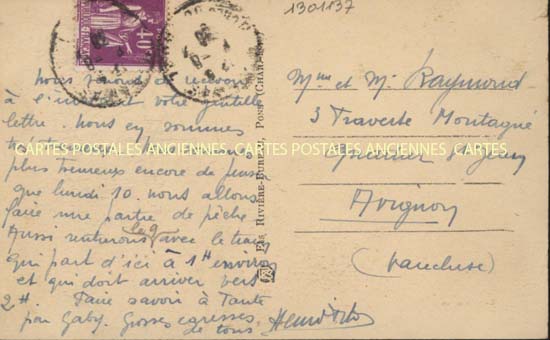 1301837
Nous venons de recevoir
à l'instant votre gentille
lettre. Nous en sommes
CARTES POSTALES ANCIENNES CARTES POSTALES ANCIENNES CARTES
plus heureux encore de
que lundi 10. nous allons
faire une partie de pêche
Aussi avec le train
qui part d'ici à 1H environ
et qui doit arriver vers
2H. Faire savoir à Tante
par Gaby. Grosses caresses
de tous.
RIVIÈRE-BUREAU, PONS
Mme et Mr Raymond
3 Traverse Montagné
Quartier St Jean
Avignon
(Vaucluse)